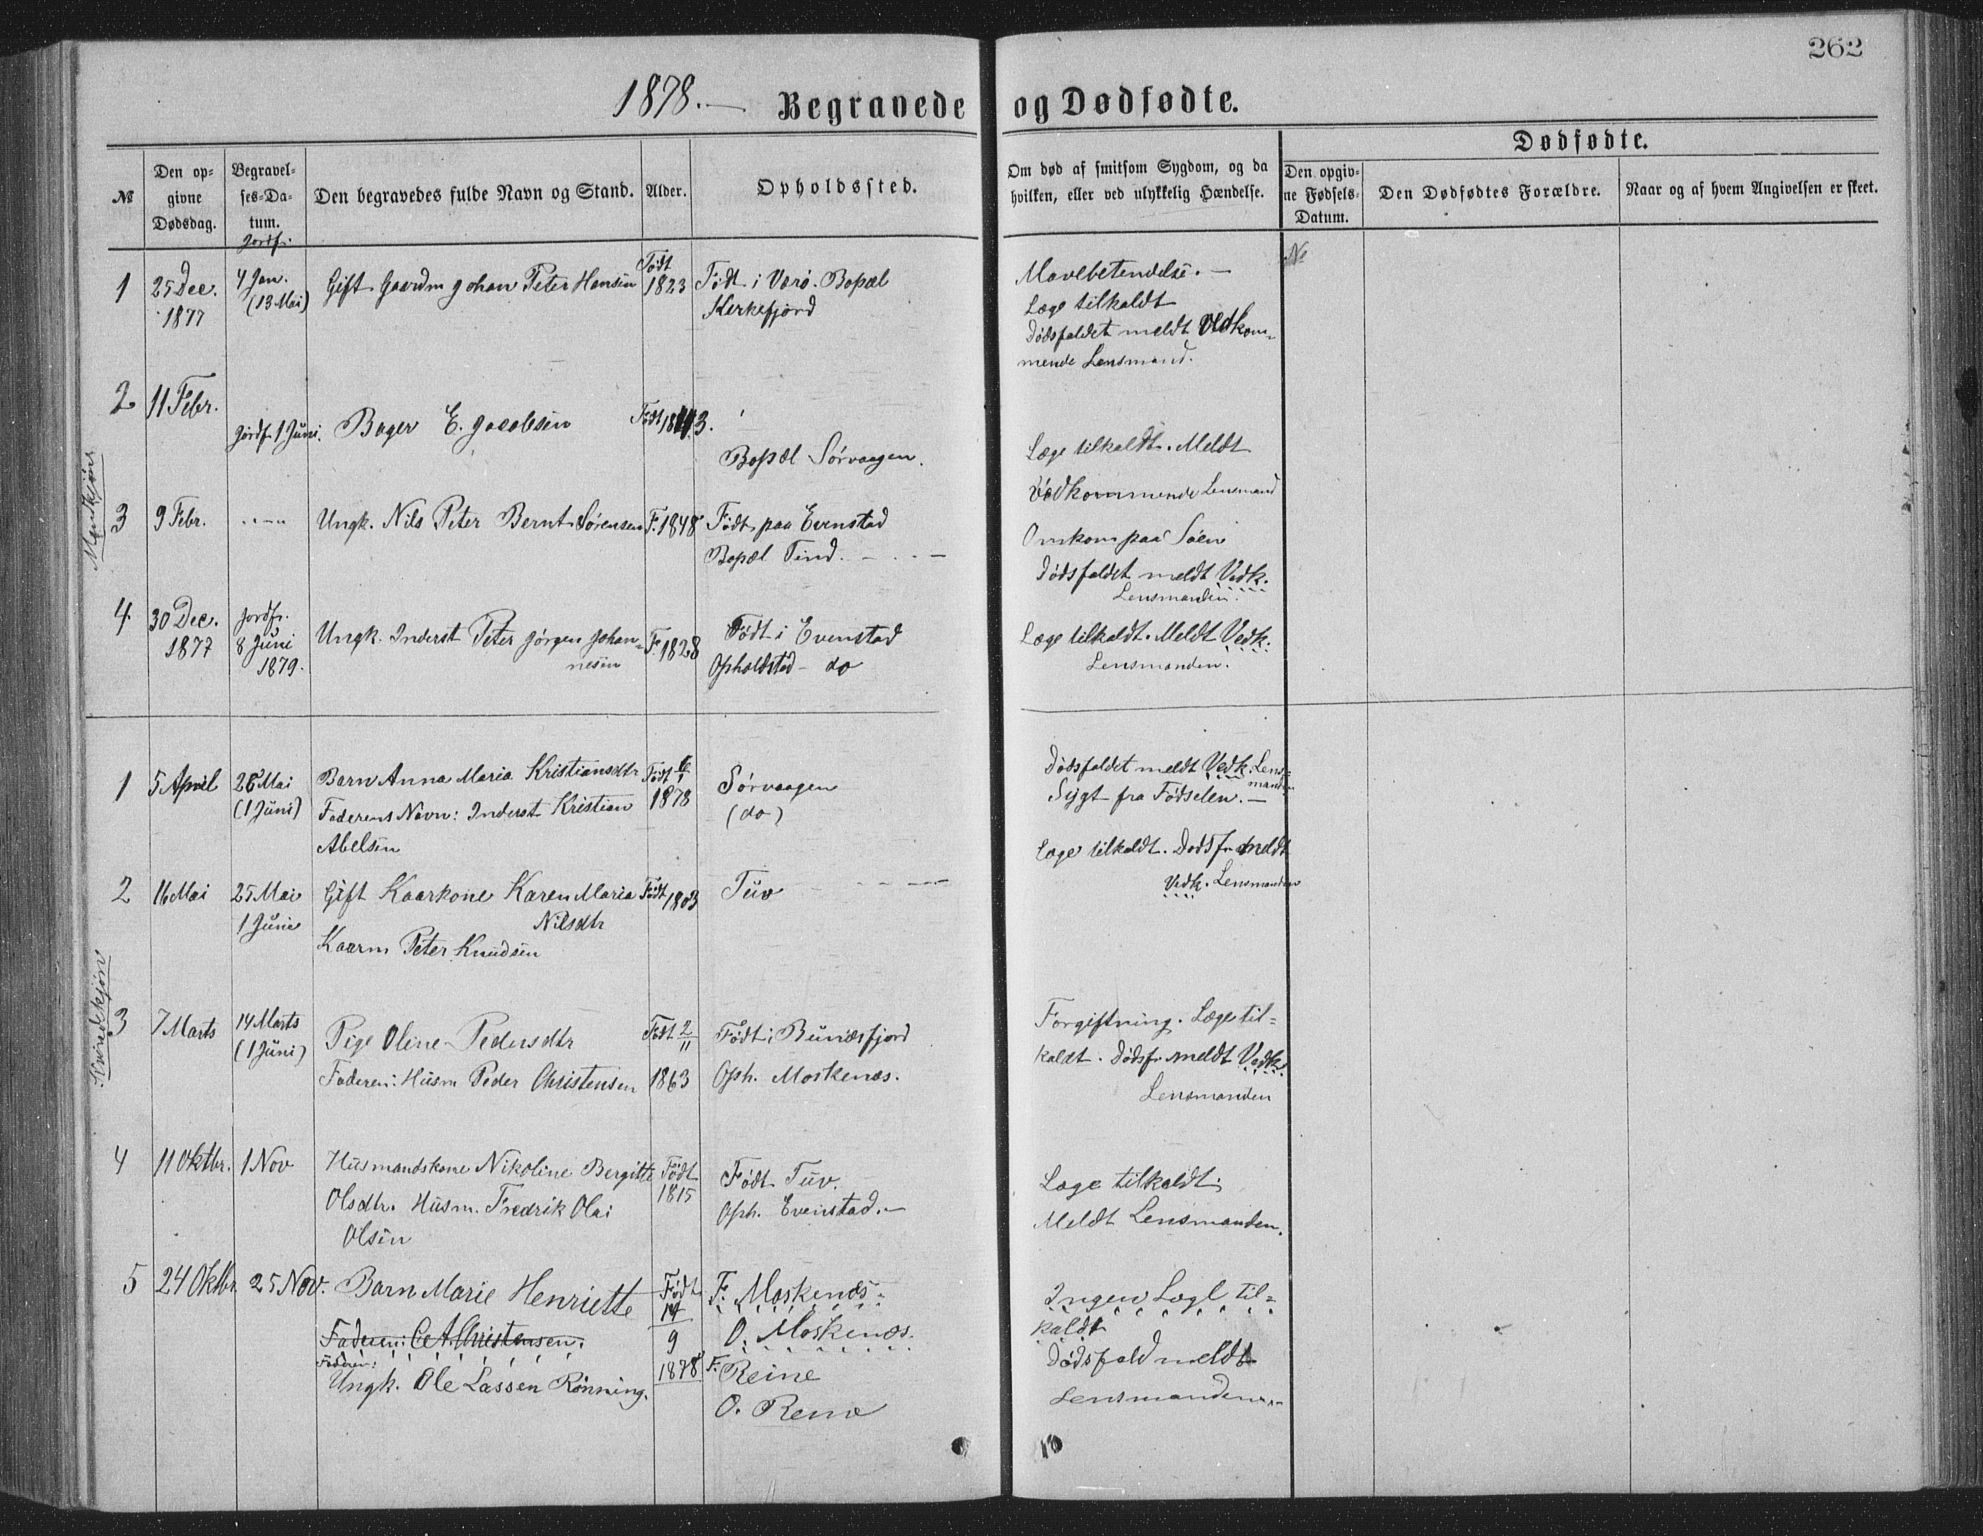 262
1878.—
Begravede og Dødfødte.
Dødfødte.
№
Den op-
givne
Dødsdag.
Begravel-
ses-Da-
tum.
Jordf.
Den begravedes fulde Navn og Stand.
Alder.
Opholdssted.
Om død af smitsom Sygdom, og da
hvilken, eller ved ulykkelig Hændelse.
Den opgiv-
ne Fødsels-
Datum.
Den Dødfødtes Forældre.
Naar og af hvem Angivelsen er skeet.
Mandkjøn
1
25 Dec.
1877
4 Jan.
(13 Mai)
Gift Gaardm Johan Peter Hansen
Født
1823
Født i Værø. Bopæl
Kerkefjord
Mavebetendelse.—
Læge tilkaldt
Dødsfaldet meldt Vedkom-
mende Lensmand.
2
11 Febr.
Jordf. 1 Juni.
Bager E. Jacobsen
Født 1843.
Bopæl Sørvaagen.
Læge tilkaldt. Meldt
Vedkommende Lensmand
3
9 Febr.
Ungk. Nils Peter Bernt Sørensen
F. 1848
Født paa Evenstad
Bopæl Tind. —
Omkom paa Søen
Dødsfaldet meldt Vedk.
Lensmanden.
4
30 Dec.
1877
Jordf.
8 Juni
1879.
Ungk. Inderst Peter Jørgen Johan-
nesen
F. 1828
Født i Evenstad
Opholdsted – do
Læge tilkaldt. Meldt Vedk.
Lensmanden.
Kvindekjøn
1
5 April
26 Mai
(1 Juni)
Barn Anna Maria Kristiansdtr
Faderens Navn: Inderst Kristian
Abelsen
Født
1878
Sørvaagen
(do)
Dødsfaldet meldt Vedk. Lens-
manden
Sygt fra Fødselen.—
2
16 Mai
25 Mai
1 Juni
Gift Kaarkone Karen Maria
Nilsdtr
Kaarm Peter Knudsen
Født 1803
Tuv
Læge tilkaldt. Dødsf. meldt
Vedk. Lensmanden
3
7 Marts
14 Marts
(1 Juni)
Pige Oline Pedersdtr
Faderen: Husm Peder Christensen
Født 2/11
1863
Født i Bunæsfjord
Oph. Moskenæs.
Forgiftning. Læge til-
kaldt. Dødsf. meldt Vedk.
Lensmanden
4
11 Oktbr.
1 Nov
Husmandskone Nikoline Bergitte
Olsdtr. Husm. Fredrik Olai
Olsen
Født
1815
Født Tuv.
Oph. Evenstad.—
Læge tilkaldt.
Meldt Lensmanden.
5
24 Oktbr
25 Nov.
Barn Marie Henriette
Faderen: C. A. Christensen.
Faderen:
Ungk. Ole Lassen Rønning.
Født
14
9
1878
F. Moskenæs.
O. Moskenæs.
F. Reine
O. Reine
Ingen Læge til-
kaldt
Dødsfald meldt
Lensmanden.